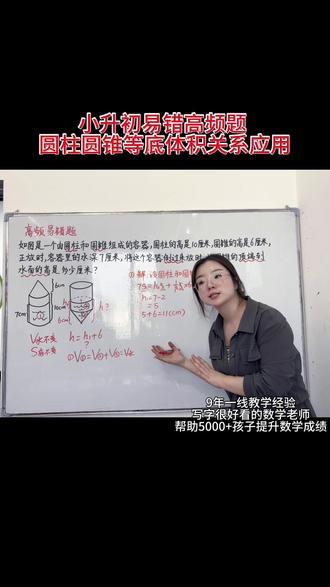 小升初易错高频题
圆柱圆锥等底体积关系应用
高频易错题
如图是一个由圆柱和圆锥组成的容器,圆柱的高是10厘米,圆锥的高是6厘米,
正放时,容器里的水深7厘米,将这个容器倒过来放时,
水面的高是多少厘米?
解:设圆柱和圆
6cm
10cm
7cm
6cm
h?
h=7-2
=5
5+6=11(cm)
V水不变
S底不变
h=h₁+6
?
9年一线教学经验
写字很好看的数学老师
帮助5000+孩子提升数学成绩